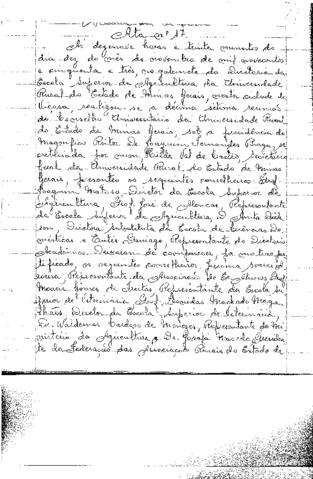 Ata nº 17.
As dezenove horas e trinta minutos do
dia dez do mês de novembro de mil novecentos
e cinquenta e três, no gabinete do Diretor da
Escola Superior de Agricultura da Universidade
Rural do Estado de Minas Gerais, nesta cidade de
Viçosa, realizou-se a décima sétima reunião
do Conselho Universitário da Universidade Rural
do Estado de Minas Gerais, sob a presidência do
Magnífico Reitor Dr. Joaquim Fernandes Braga, se
cretariada por mim, Secretário
Geral da Universidade Rural do Estado de Minas
Gerais, presentes os seguintes conselheiros: Prof.
Joaquim Matoso, Diretor da Escola Superior de
Agricultura, Prof. José de Alencar, Representante
da Escola Superior de Agricultura, D. Anita
Diretora substituta da Escola de Ciências Do
mésticas e Representante do Diretório
Acadêmico. Deixaram de comparecer,
ficado, os seguintes conselheiros:
Representante da Associação de Ex-Alunos, Prof.
Moacir Gomes de Freitas, Representante da Escola Su
perior de Veterinária, Prof. Leonidas Machado Maga
lhães, Diretor da Escola Superior de Veterinária,
Dr. Waldemar Cardoso de Menezes, Representante do Mi
nistério da Agricultura e Dr. Josafá Macedo, Presiden
te da Federação das Associações Rurais do Estado de